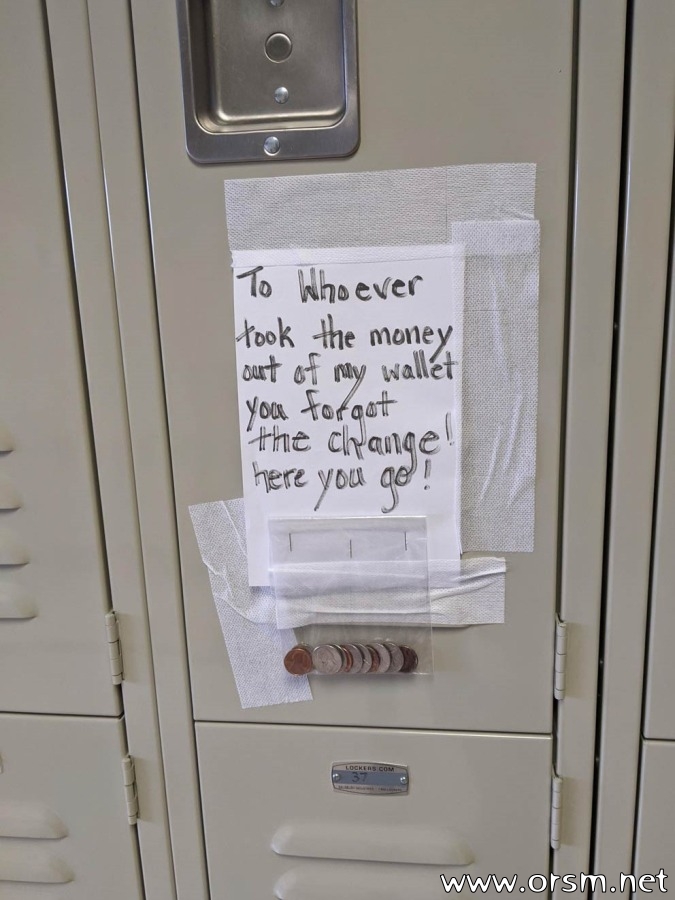 To Whoever
took the money
out of my wallet
you forgot
the change!
here you go!
LOCKERS.COM
37
www.orsm.net